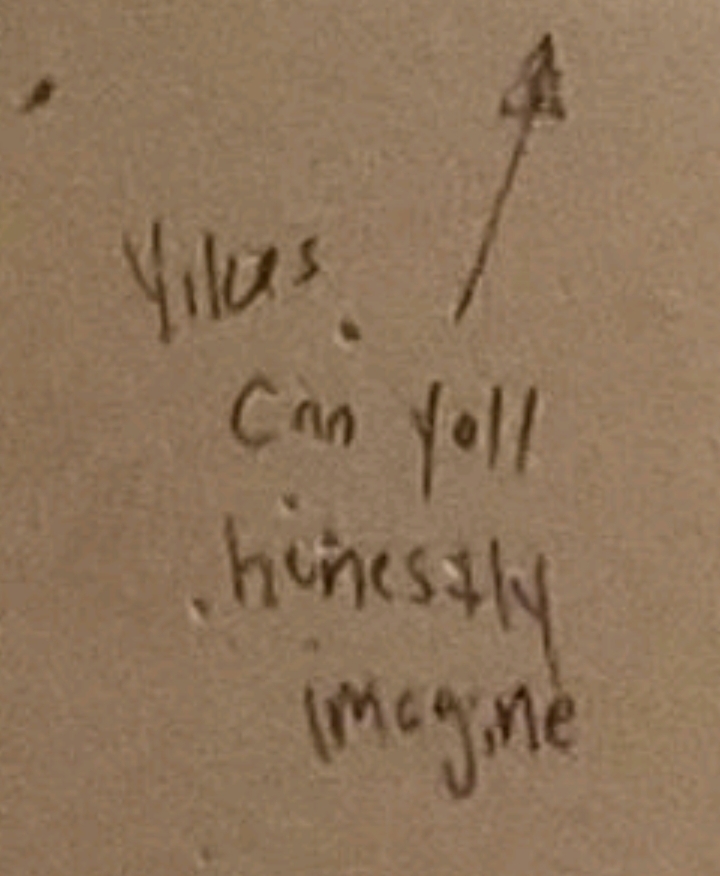 Yikes
Can yall
honestly
imagine